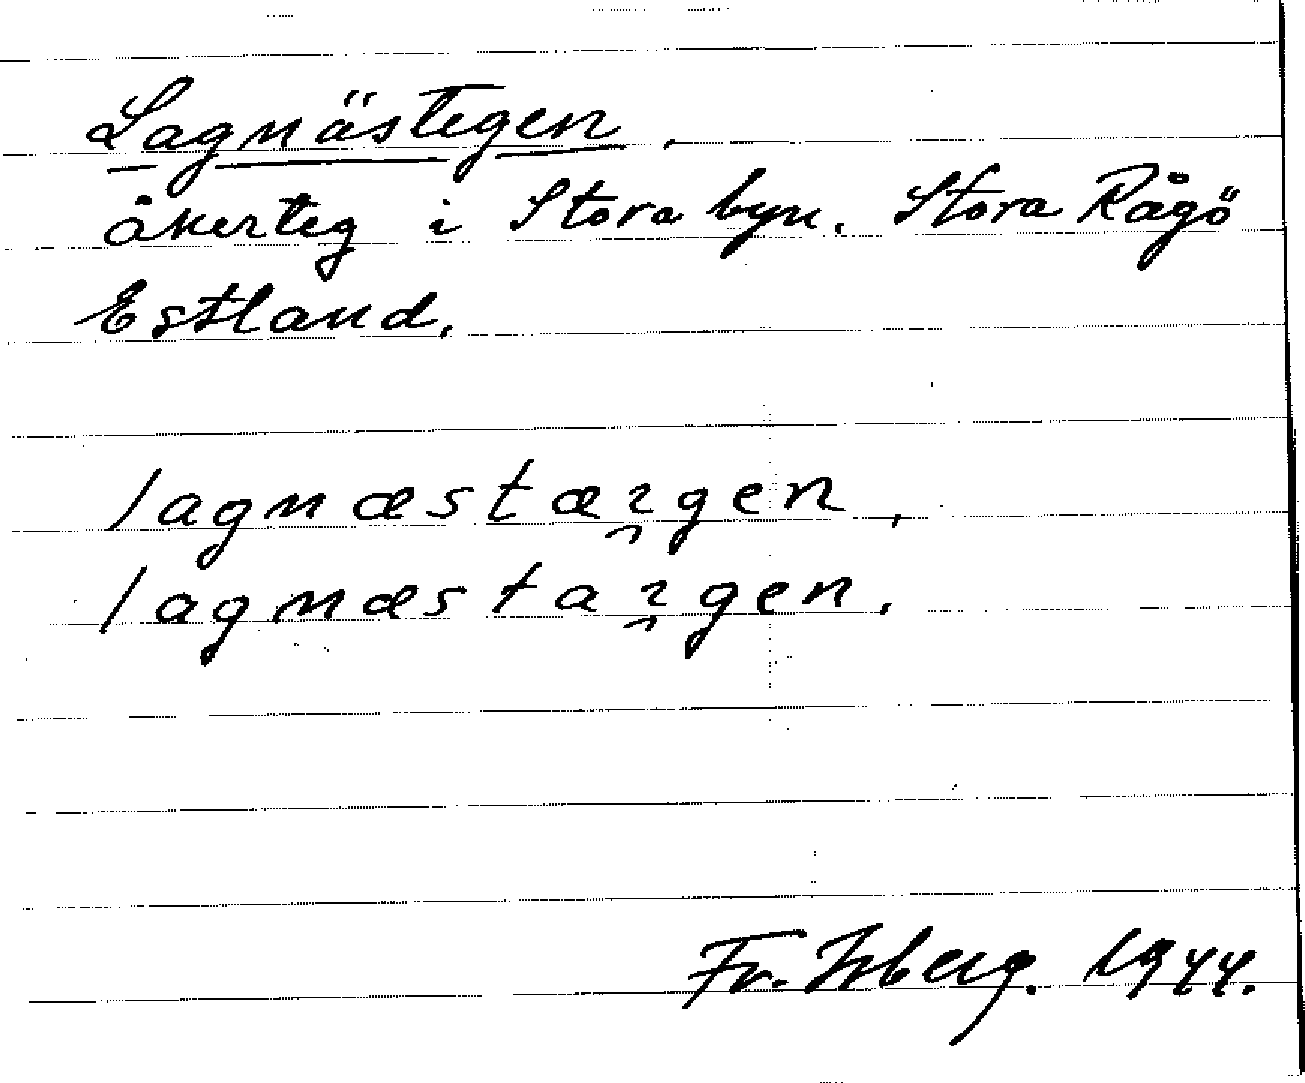 Lagnästegen,
åkerteg i Stora byn. Stora Rågö
Estland.
lagnæstæı̯gen,
lagnæstaı̯gen.
Fr. Isberg. 1944.